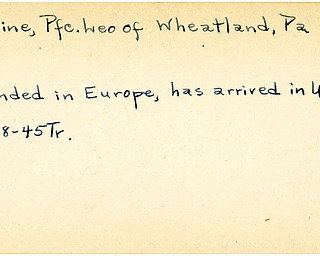 ine, Pfc. Leo of Wheatland, Pa
nded in Europe, has arrived in U
8-45 Tr.